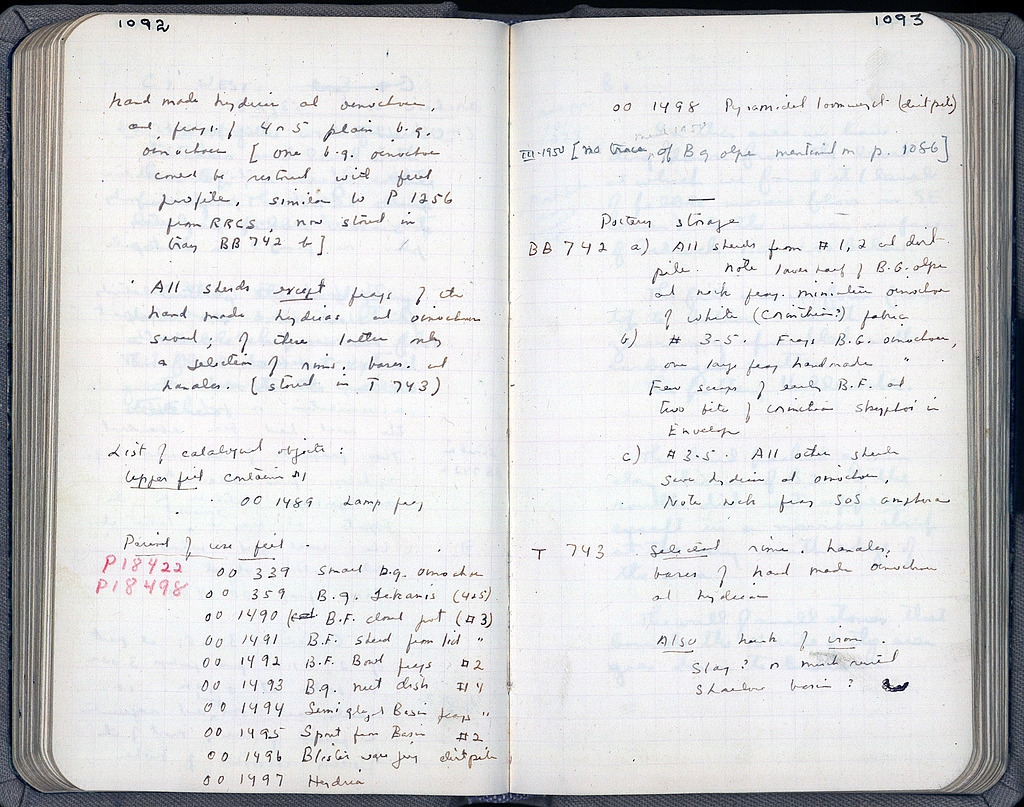 1092
hand made hydriai and oinochoai,
and frags. of 4 or 5 plain b.g.
oinochoai [ one b.g. oinochoe
could be restored with full
profile, similar to P 1256
from RRCS, now stored in
tray BB 742 b ]
All sherds except frags of the
hand made hydrias and oinochoai
saved; of these latter only
a selection of rims, bases, and
handles. (stored in T 743)
List of catalogued objects:
Upper fill containing #1
00 1489 Lamp frag
Period of use fill.
P18422 00 339 Small b.g. oinochoe
P18498 00 359 B.g. Lekanis (4+5)
00 1490 B.F. closed pot (#3)
00 1491 B.F. sherd from lid "
00 1492 B.F. Bowl frags #2
00 1493 B.g. dish #4
00 1494 Semi glazed Basin frags "
00 1495 Spout from Basin #2
00 1496 Blister ware jug dirt pile
00 1497 Hydria
1093
00 1498 Pyramidal loomweight (dirt pile)
III-1950 [no trace of B g olpe mentioned on p. 1086]
Pottery storage
BB 742 a) All sherds from #1, 2 and dirt
pile. Note lower half of B.G. olpe
and neck frag. miniature oinochoe
of white (Corinthian?) fabric
b) #3-5. Frags B.G. oinochoai,
one large frag handmade "
Few scraps of early B.F. and
two bits of Corinthian skyphoi in
Envelope
c) #3-5. All other sherds
save hydriai and oinochoai,
Note neck frag SOS amphora
T 743 Selected rims, handles,
bases of hand made oinochoai
and hydriai
Also hunk of iron.
Slag? or much rusted
shallow basin?